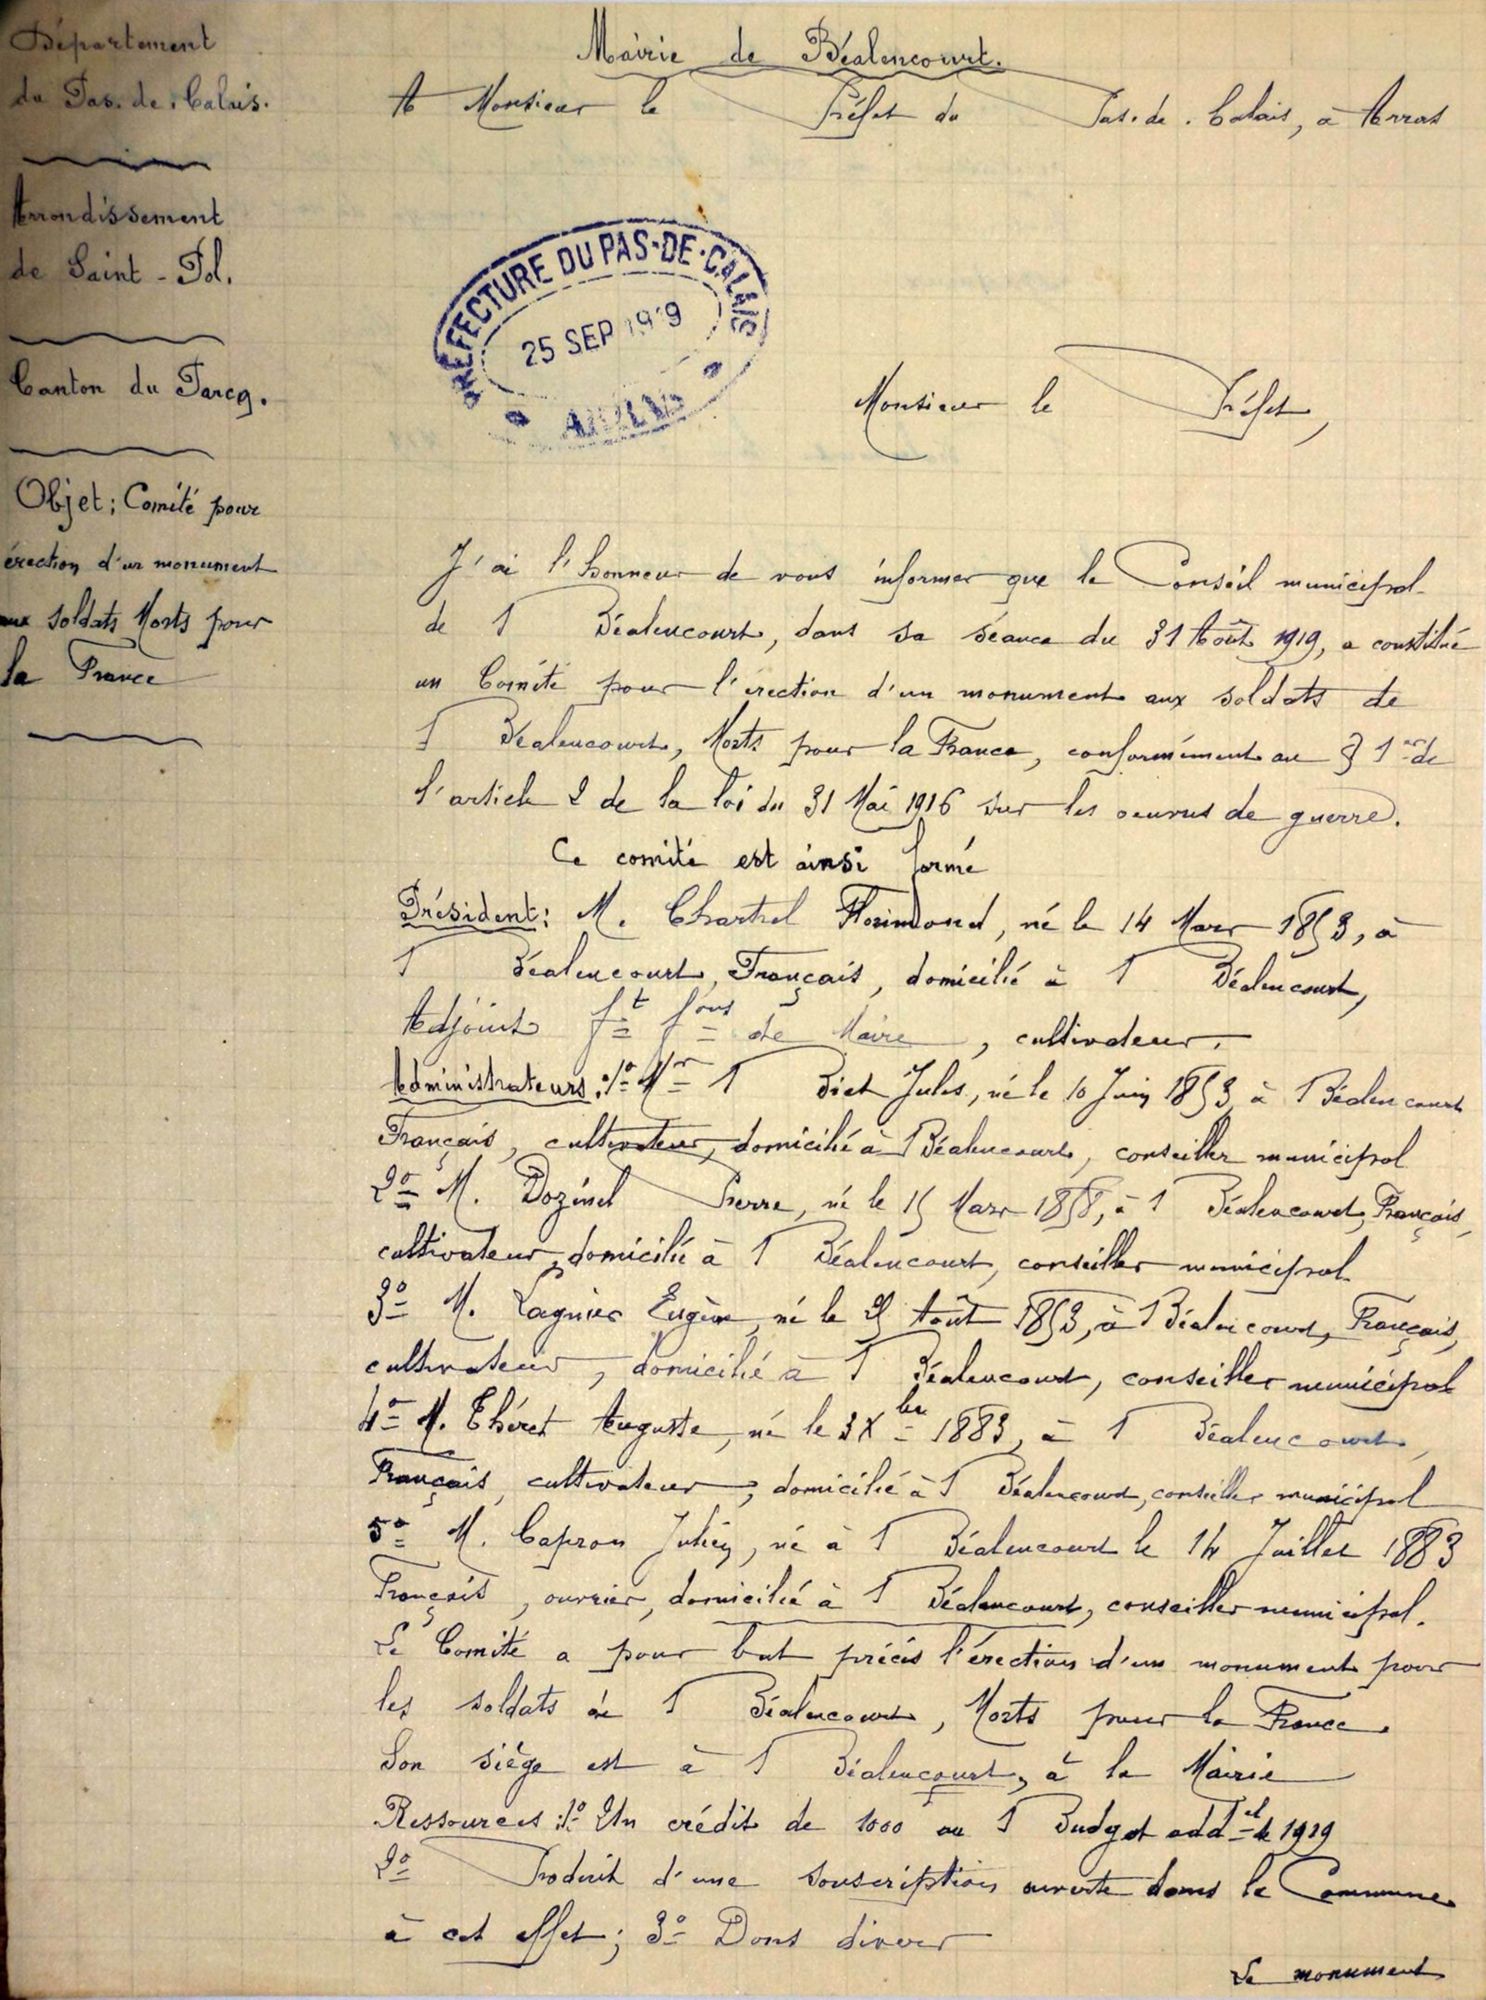 Département
du Pas-de-Calais.
Arrondissement
de Saint-Pol.
Canton du Parcq.
Objet; Comité pour
érection d'un monument
aux soldats Morts pour
la France
Mairie de Béalencourt.
A Monsieur le Préfet du Pas-de-Calais, à Arras
PREFECTURE DU PAS-DE-CALAIS
25 SEP 1919
ARRAS
Monsieur le Préfet,
J'ai l'honneur de vous informer que le Conseil municipal
de Béalencourt, dans sa séance du 31 Août 1919, a constitué
un Comité pour l'érection d'un monument aux soldats de
Béalencourt, Morts pour la France, conformément au § 1er de
l'article 2 de la loi du 31 Mai 1916 sur les oeuvres de guerre.
Ce comité est ainsi formé
Président: M. Chartrel Florimond, né le 14 Mars 1853, à
Béalencourt, Français, domicilié à Béalencourt,
Adjoint ft fons de Maire, cultivateur.
Administrateurs: 1º Mr Biet Jules, né le 10 Juin 1853 à Béalencourt
Français, cultivateur, domicilié à Béalencourt, conseiller municipal
2º M. Dozinel Pierre, né le 15 Mars 1858, à Béalencourt, Français,
cultivateur, domicilié à Béalencourt, conseiller municipal
3º M. Lagnier Eugène, né le 25 Août 1853, à Béalencourt, Français,
cultivateur, domicilié à Béalencourt, conseiller municipal
4º M. Théret Auguste, né le 3 Xbre 1883, à Béalencourt,
Français, cultivateur, domicilié à Béalencourt, conseiller municipal
5º M. Capron Julien, né à Béalencourt le 14 Juillet 1883
Français, ouvrier, domicilié à Béalencourt, conseiller municipal.
Le Comité a pour but précis l'érection d'un monument pour
les soldats de Béalencourt, Morts pour la France.
Son siège est à Béalencourt, à la Mairie
Ressources: 1º Un crédit de 1000 au Budget addel de 1919
2º Produit d'une souscription ouverte dans la Commune
à cet effet; 3º Dons divers
Le monument